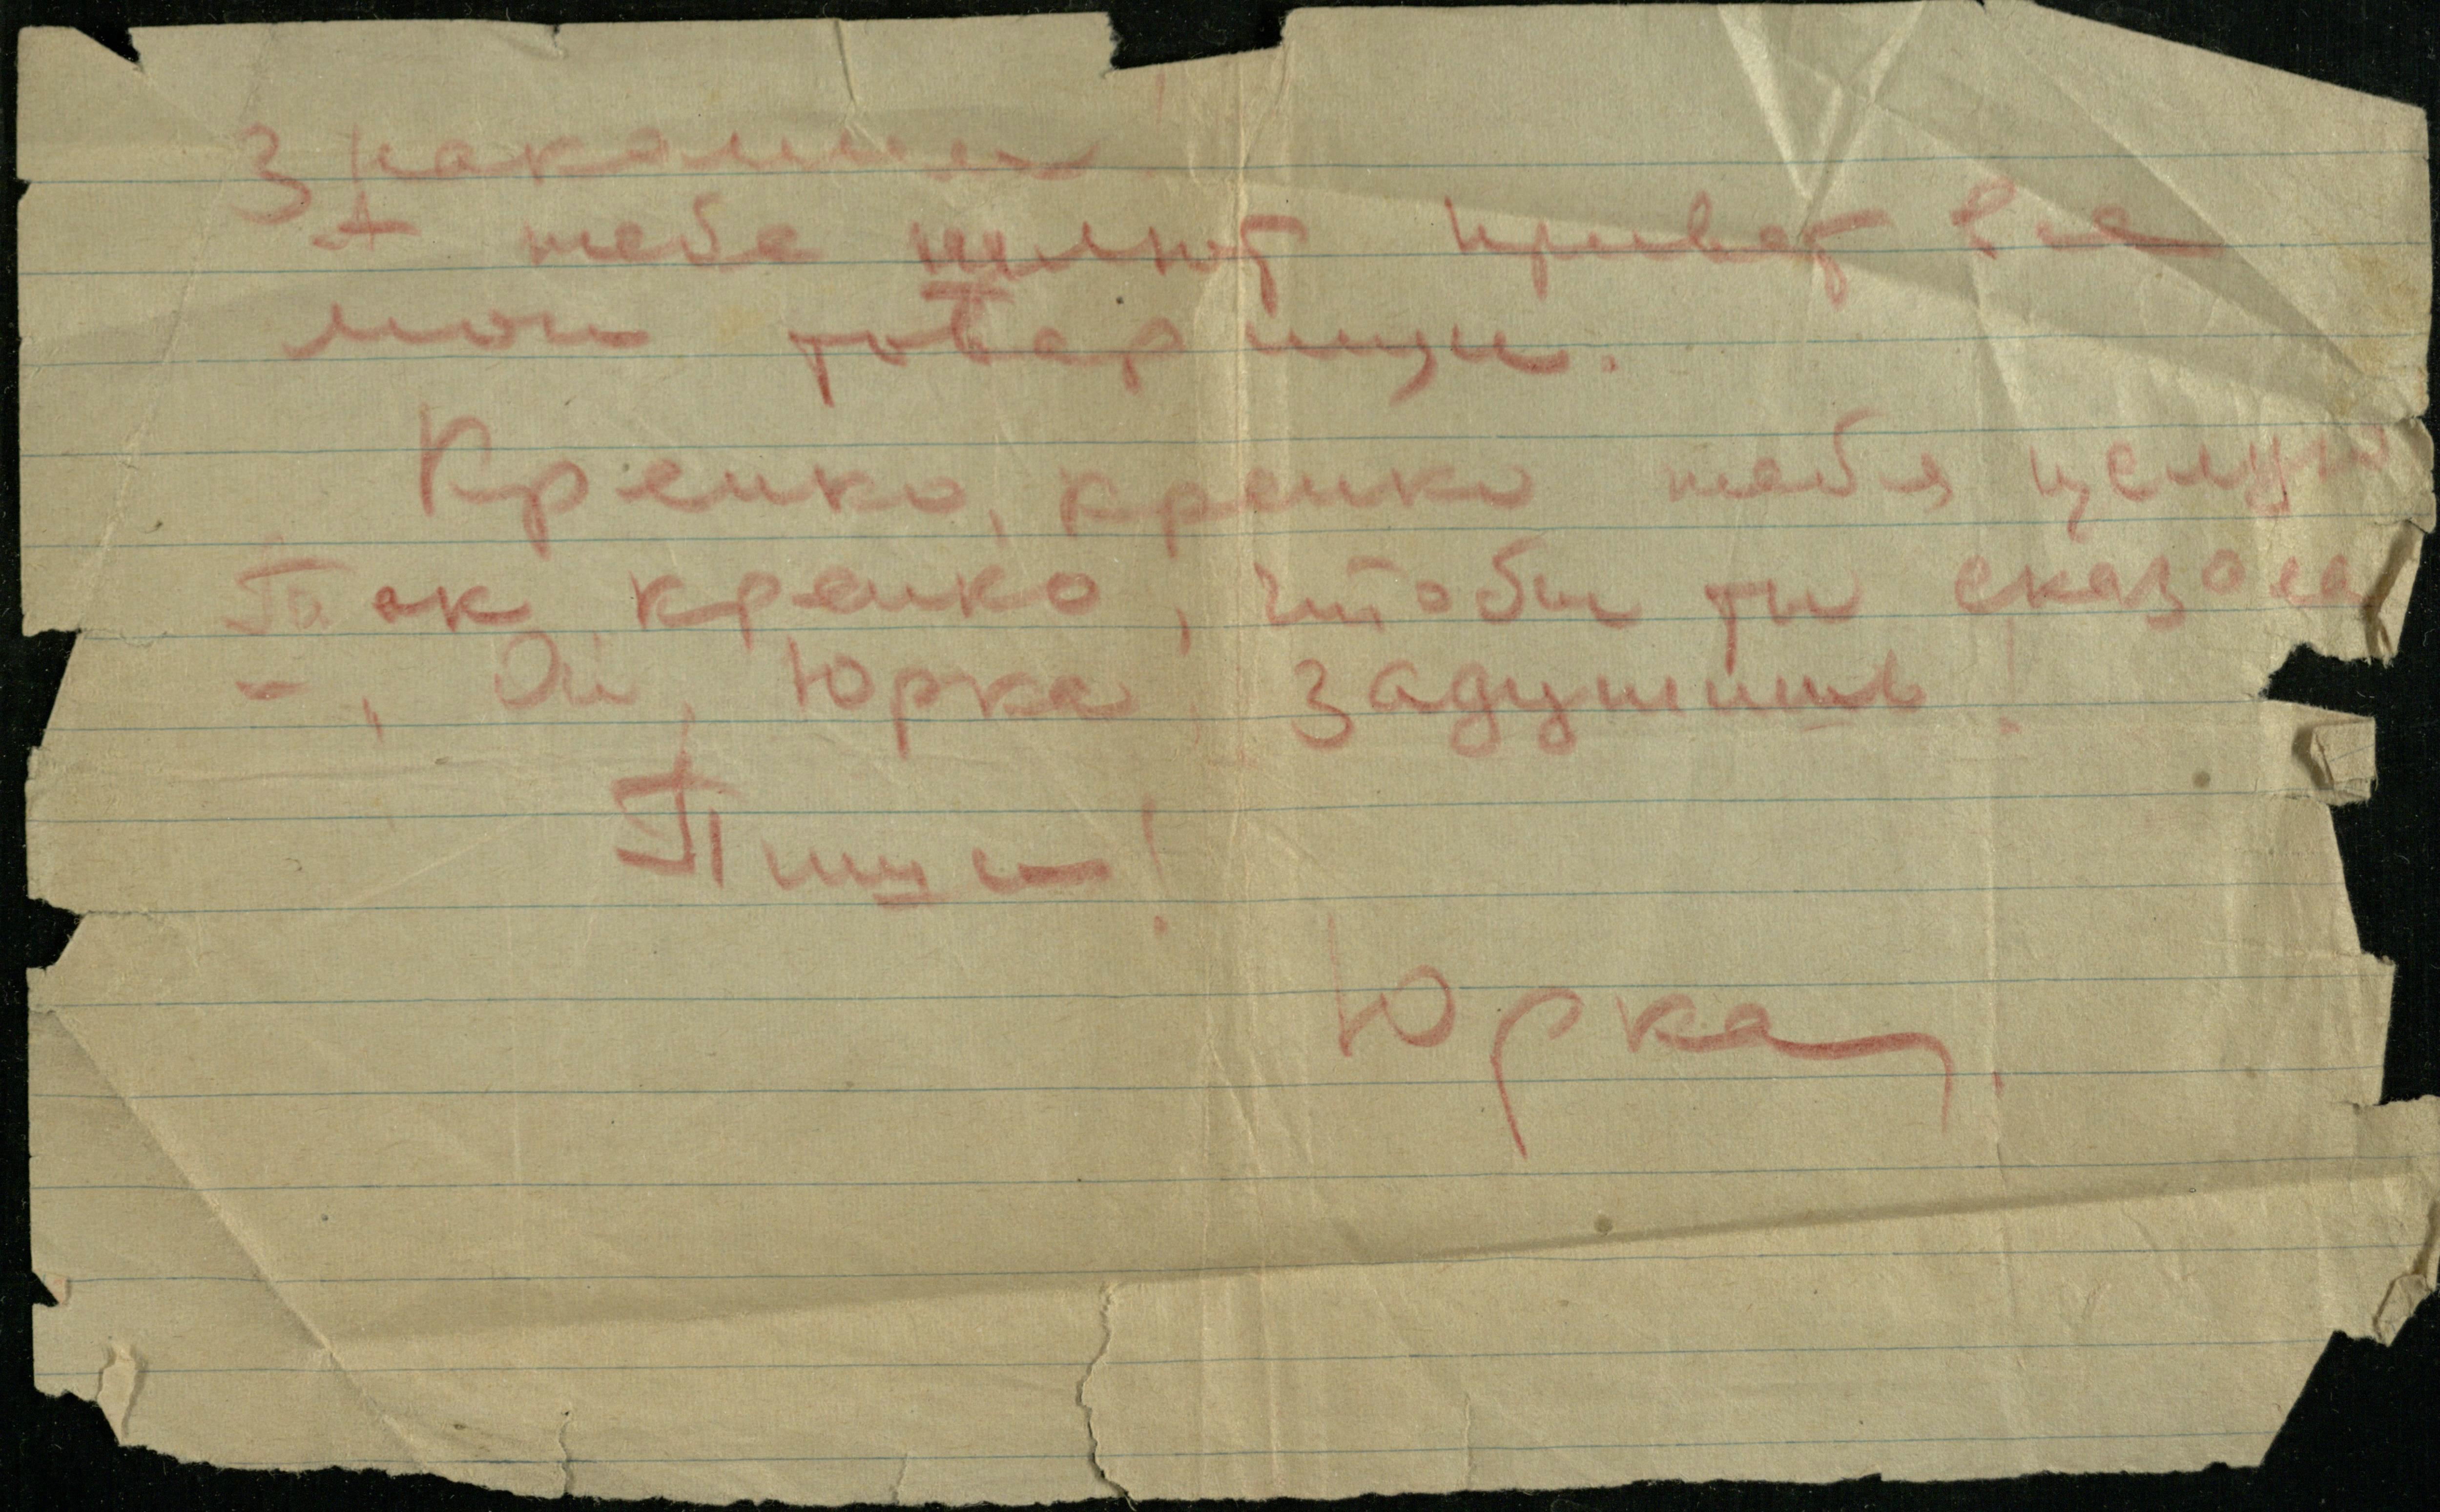 знакомым
А тебе шлют привет все
мои товарищи.
Крепко, крепко тебя целую
Так крепко, чтобы ты сказала
–„ Ой, Юрка, задушишь!
Пиши!
Юрка.